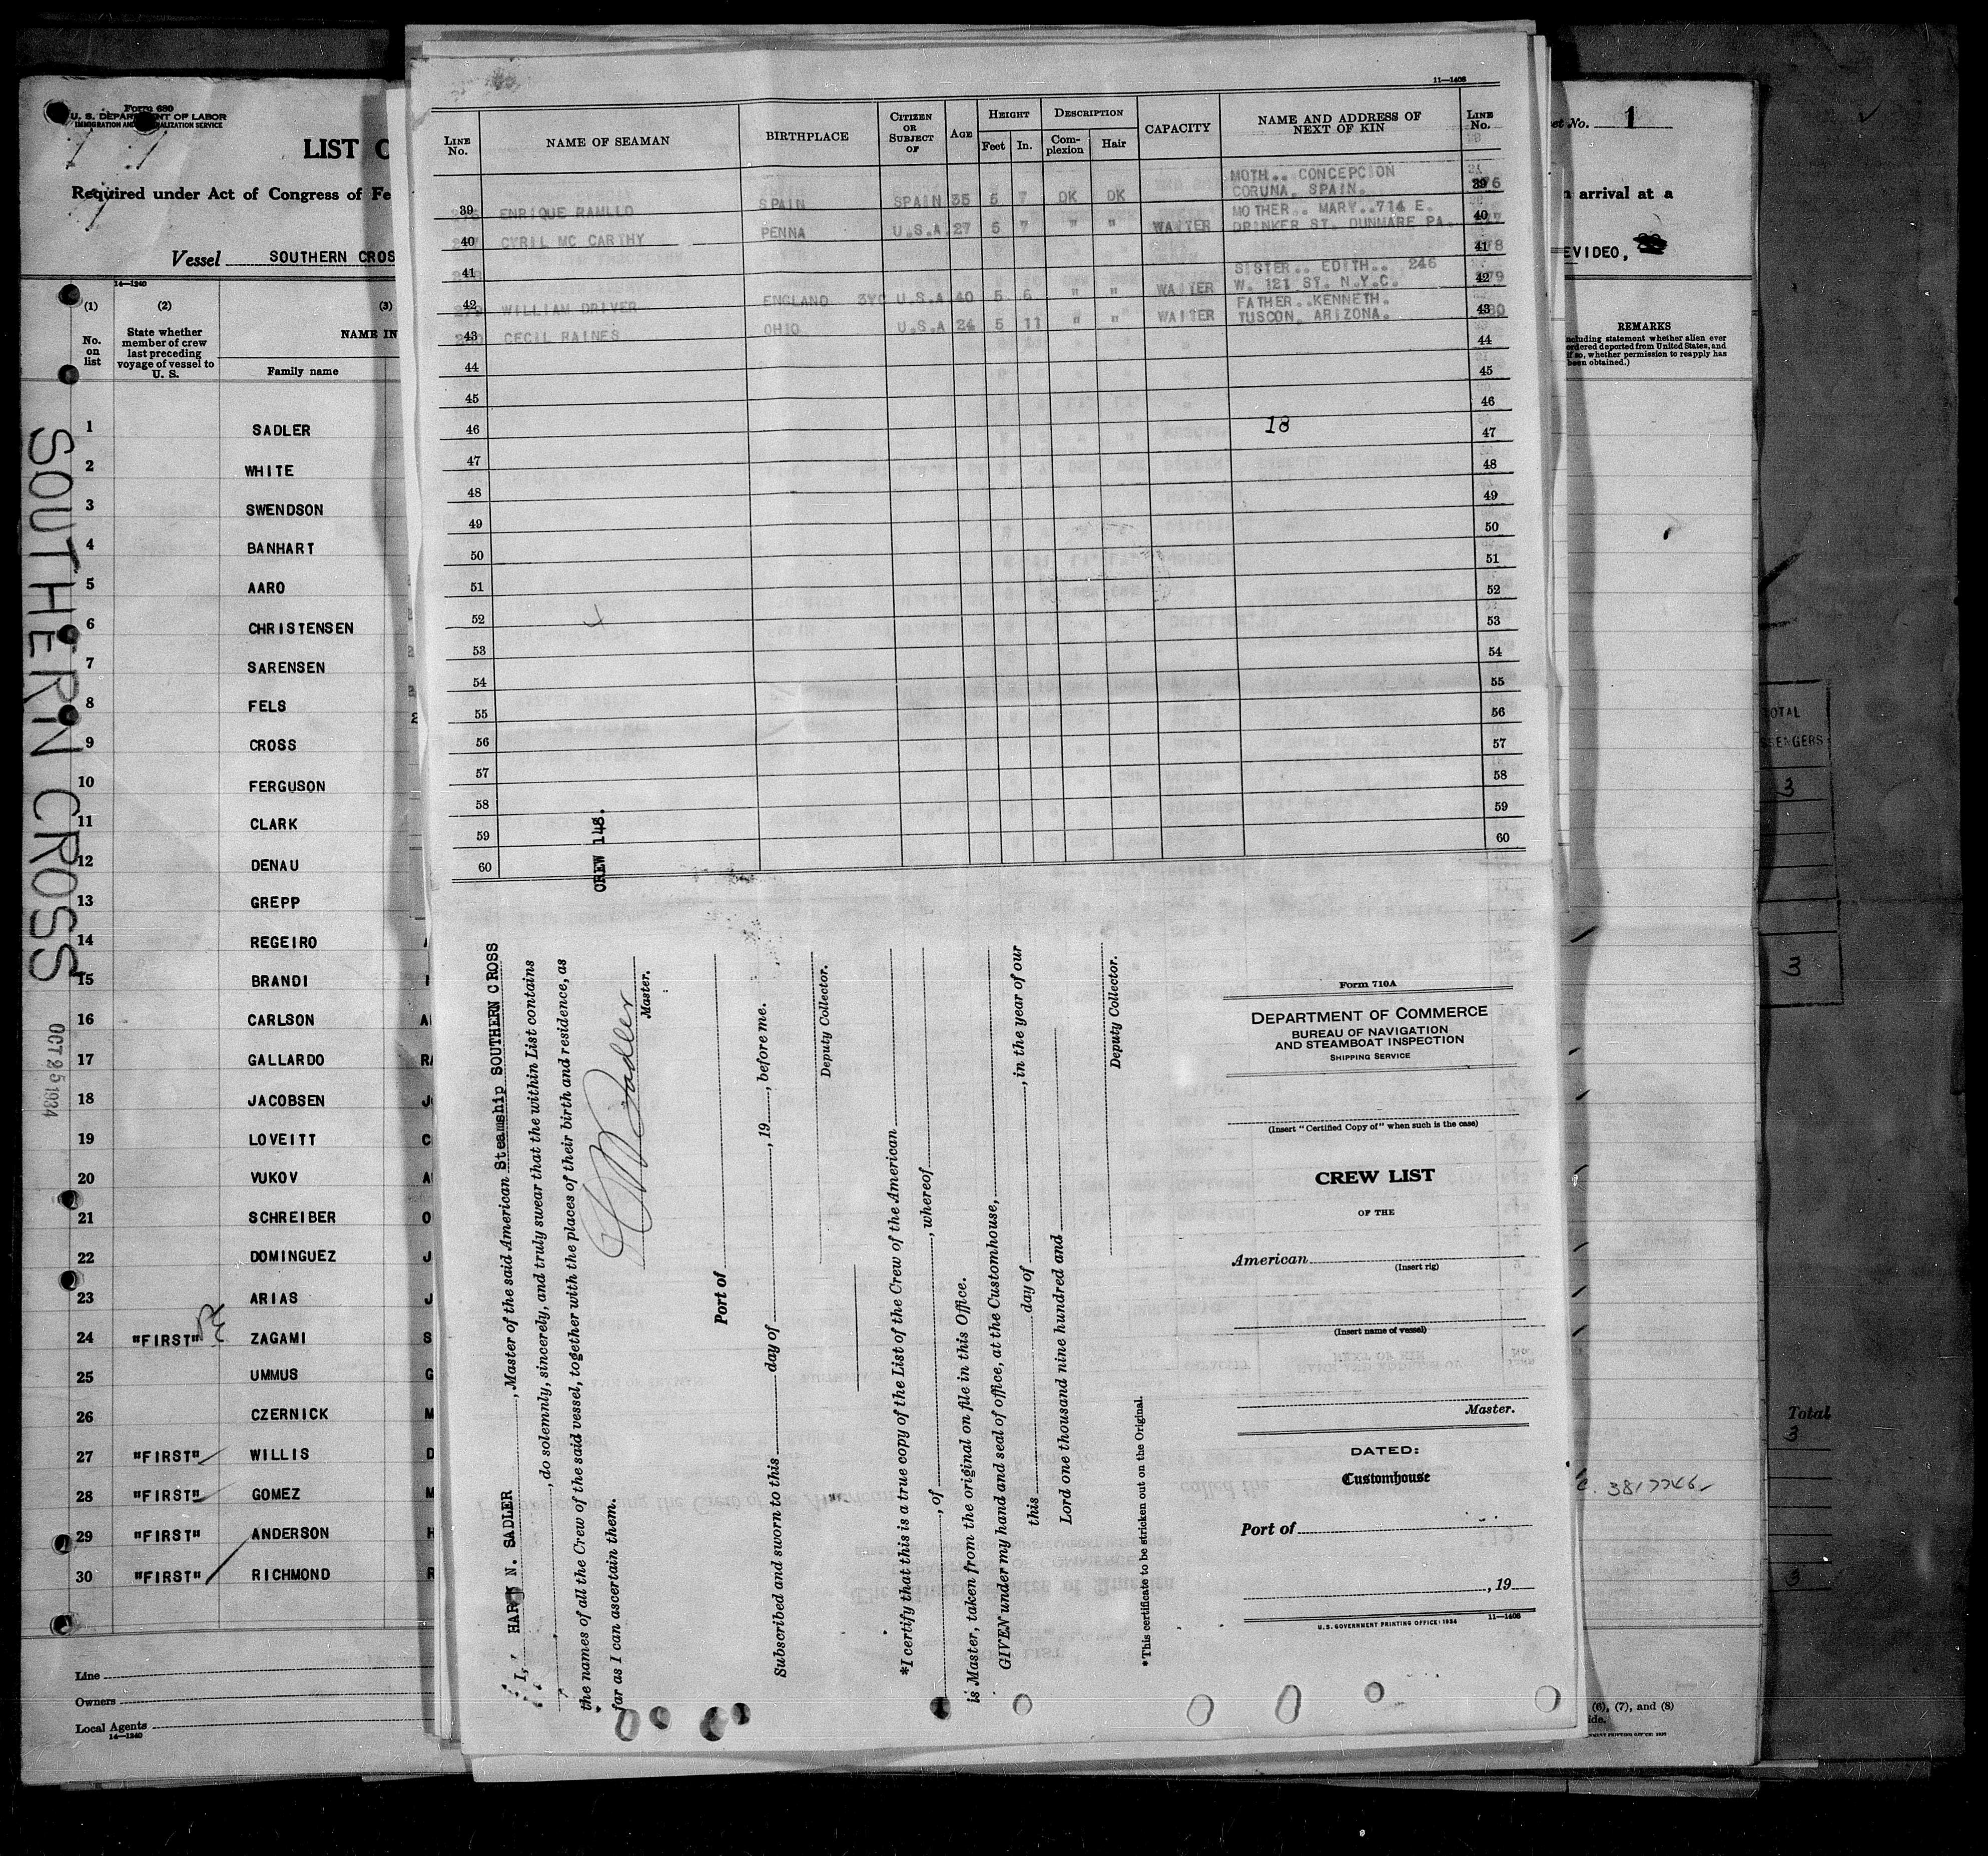 Form 689
U. S. DEPARTMENT OF LABOR
IMMIGRATION AND NATURALIZATION SERVICE
LIST O
Required under Act of Congress of Fe
Vessel SOUTHERN CROS
14—1240
(1) (2) (3)
No. on list
State whether member of crew last preceding voyage of vessel to U. S.
NAME IN
Family name
1 SADLER
2 WHITE
3 SWENDSON
4 BANHART
5 AARO
6 CHRISTENSEN
7 SARENSEN
8 FELS
9 CROSS
10 FERGUSON
11 CLARK
12 DENAU
13 GREPP
14 REGEIRO
15 BRANDI
16 CARLSON
17 GALLARDO RA
18 JACOBSEN
19 LOVEITT C
20 VUKOV
21 SCHREIBER O
22 DOMINGUEZ J
23 ARIAS J
24 "FIRST" ZAGAMI S
25 UMMUS G
26 CZERNICK M
27 "FIRST" WILLIS D
28 "FIRST" GOMEZ M
29 "FIRST" ANDERSON H
30 "FIRST" RICHMOND R
Line
Owners
Local Agents
14—1240
SOUTHERN CROSS
OCT 25 1934
11—1408
LINE No. NAME OF SEAMAN BIRTHPLACE CITIZEN OR SUBJECT OF AGE HEIGHT Feet In. DESCRIPTION Complexion Hair CAPACITY NAME AND ADDRESS OF NEXT OF KIN LINE No.
MOTH.. CONCEPCION
39 ENRIQUE RAMLLO SPAIN SPAIN 35 5 7 DK DK CORUNA. SPAIN. 39
MOTHER.. MARY..714 E.
40 CYRIL MC CARTHY PENNA U.S.A. 27 5 7 " " WAITER DRINKER ST. DUNMARE PA. 40
41 41
SISTER.. EDITH.. 246
42 WILLIAM DRIVER ENGLAND U.S.A 40 5 6 " " WAITER W. 121 ST. N.Y.C. 42
FATHER..KENNETH.
43 CECIL RAINES OHIO U.S.A 24 5 11 " " WAITER TUSCON, ARIZONA. 43
44 44
45 45
46 46
18
47 47
48 48
49 49
50 50
51 51
52 52
53 53
54 54
55 55
56 56
57 57
58 58
59 59
60 60
CREW 148.
I, HARRY N. SADLER, Master of the said American Steamship SOUTHERN CROSS
, do solemnly, sincerely, and truly swear that the within List contains
the names of all the Crew of the said vessel, together with the places of their birth and residence, as
far as I can ascertain them.
Sadler
Master.
Port of
Subscribed and sworn to this day of , 19 , before me.
Deputy Collector.
*I certify that this is a true copy of the List of the Crew of the American
, of , whereof
is Master, taken from the original on file in this Office.
GIVEN under my hand and seal of office, at the Customhouse,
this day of , in the year of our
Lord one thousand nine hundred and
Deputy Collector.
*This certificate to be stricken out on the Original.
Form 710A
DEPARTMENT OF COMMERCE
BUREAU OF NAVIGATION
AND STEAMBOAT INSPECTION
SHIPPING SERVICE
(Insert "Certified Copy of" when such is the case)
CREW LIST
OF THE
American
(Insert rig)
(Insert name of vessel)
Master.
DATED:
Customhouse
Port of
, 19
U.S. GOVERNMENT PRINTING OFFICE: 1934 11—1408
et No. 1
arrival at a
EVIDEO,
REMARKS
(Including statement whether alien ever
ordered deported from United States, and
if so, whether permission to reapply has
been obtained.)
(6), (7), and (8)
TOTAL
SENGERS
3
3
Total
3
3